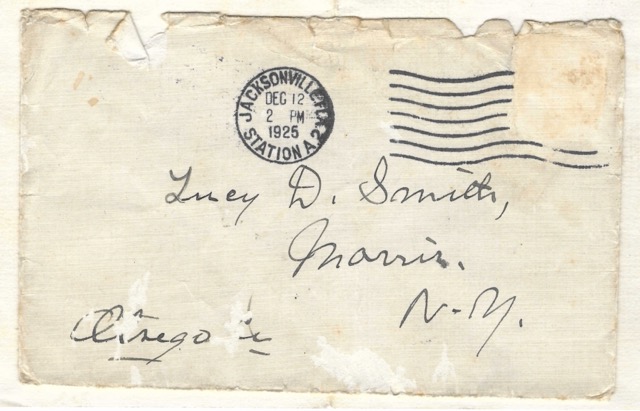 JACKSONVILLE, FLA.
DEC 12
2 PM
1925
STATION A. 2
Lucy D. Smith,
Morris.
N.-Y.
Otsego